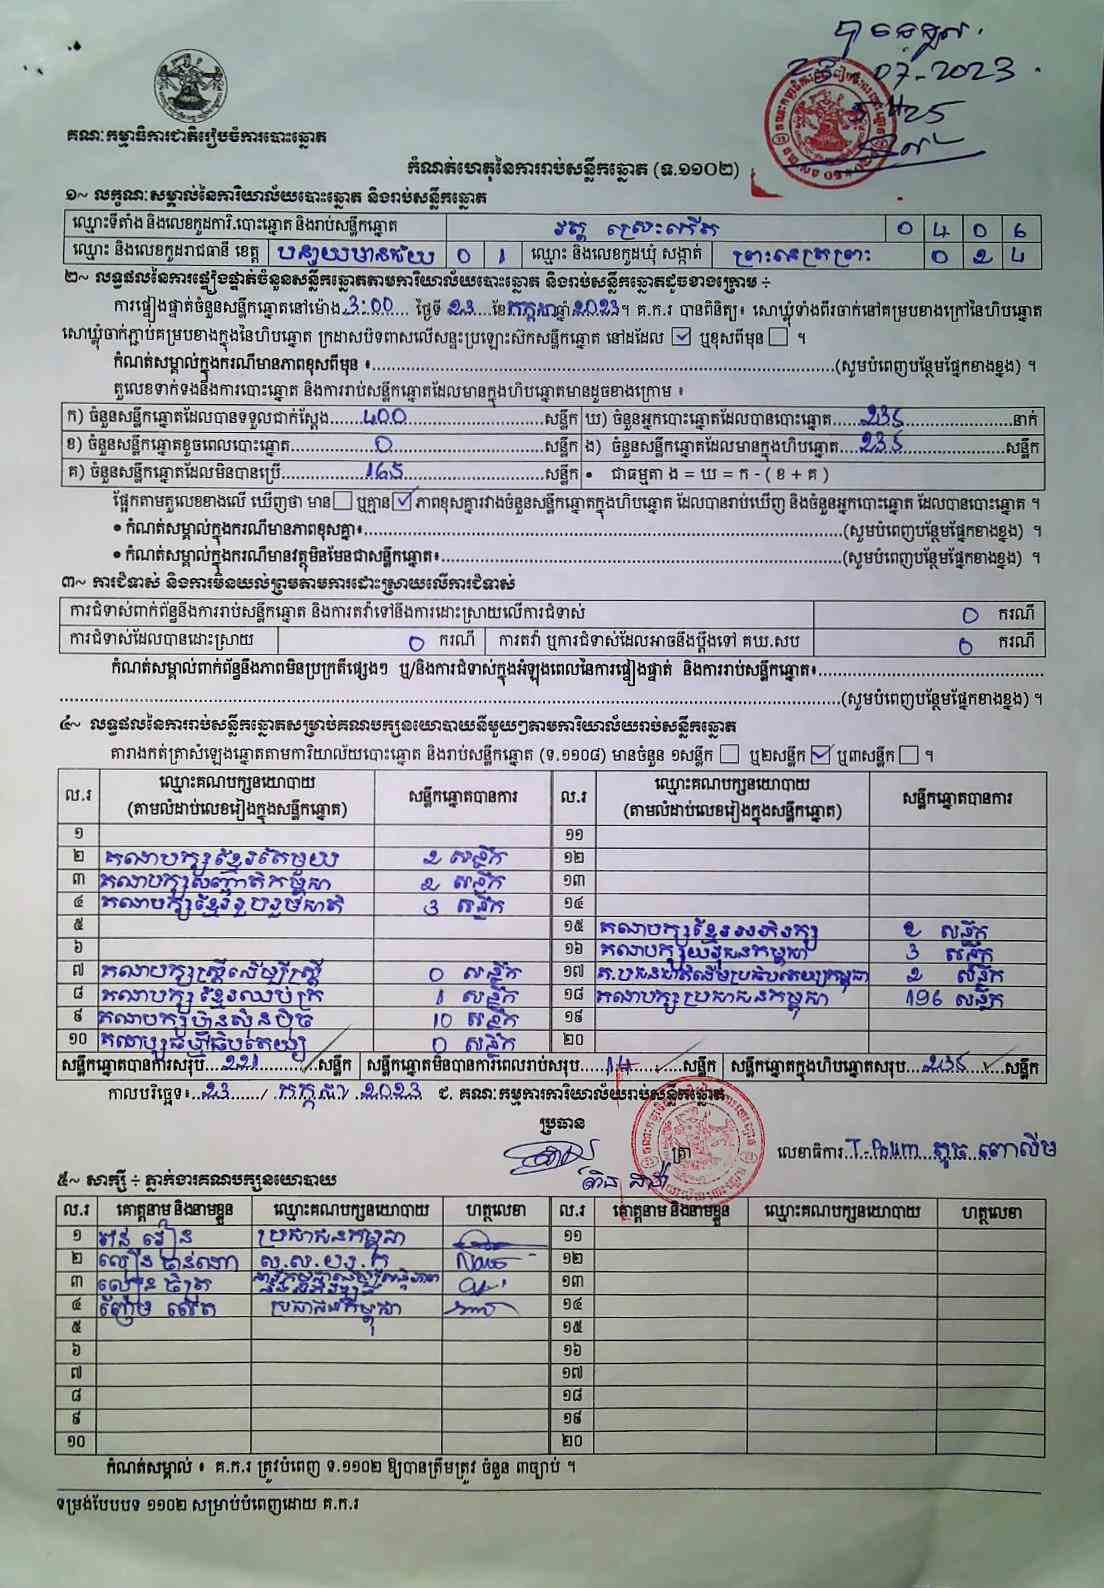 07-2023
គណៈកម្មាធិការជាតិរៀបចំការបោះឆ្នោត
កំណត់ហេតុនៃការរាប់សន្លឹកឆ្នោត (ទ.១១០២)
១~ លក្ខណៈសម្គាល់នៃការិយាល័យបោះឆ្នោត និងរាប់សន្លឹកឆ្នោត
ឈ្មោះទីតាំង និងលេខកូដការិ.បោះឆ្នោត និងរាប់សន្លឹកឆ្នោត វត្ត ស្រះកើត 0 4 0 6
ឈ្មោះ និងលេខកូដរាជធានី ខេត្ត បន្ទាយមានជ័យ 0 1 ឈ្មោះ និងលេខកូដឃុំ សង្កាត់ ព្រះនេត្រព្រះ 0 2 4
២~ លទ្ធផលនៃការផ្ទៀងផ្ទាត់ចំនួនសន្លឹកឆ្នោតតាមការិយាល័យបោះឆ្នោត និងរាប់សន្លឹកឆ្នោតដូចខាងក្រោម ÷
ការផ្ទៀងផ្ទាត់ចំនួនសន្លឹកឆ្នោតនៅម៉ោង 3:00 ថ្ងៃទី 23 ខែ កក្កដា ឆ្នាំ 2023 ។ គ.ក.រ បានពិនិត្យ៖ សោឃ្លុំទាំងពីរចាក់នៅគម្របខាងក្រៅនៃហិបឆ្នោត
សោឃ្លុំចាក់ភ្ជាប់គម្របខាងក្នុងនៃហិបឆ្នោត ក្រដាសបិទពាសលើសន្ទះប្រឡោះស៊កសន្លឹកឆ្នោត នៅដដែល ☑ ឬខុសពីមុន ☐ ។
កំណត់សម្គាល់ក្នុងករណីមានភាពខុសពីមុន ៖ (សូមបំពេញបន្ថែមផ្នែកខាងខ្នង) ។
តួលេខទាក់ទងនឹងការបោះឆ្នោត និងការរាប់សន្លឹកឆ្នោតដែលមានក្នុងហិបឆ្នោតមានដូចខាងក្រោម ៖
ក) ចំនួនសន្លឹកឆ្នោតដែលបានទទួលជាក់ស្ដែង 400 សន្លឹក ឃ) ចំនួនអ្នកបោះឆ្នោតដែលបានបោះឆ្នោត 235 នាក់
ខ) ចំនួនសន្លឹកឆ្នោតខូចពេលបោះឆ្នោត 0 សន្លឹក ង) ចំនួនសន្លឹកឆ្នោតដែលមានក្នុងហិបឆ្នោត 235 សន្លឹក
គ) ចំនួនសន្លឹកឆ្នោតដែលមិនបានប្រើ 165 សន្លឹក • ជាធម្មតា ង = ឃ = ក - ( ខ + គ )
ផ្អែកតាមតួលេខខាងលើ ឃើញថា មាន ☐ ឬគ្មាន ☑ ភាពខុសគ្នារវាងចំនួនសន្លឹកឆ្នោតក្នុងហិបឆ្នោត ដែលបានរាប់ឃើញ និងចំនួនអ្នកបោះឆ្នោត ដែលបានបោះឆ្នោត ។
• កំណត់សម្គាល់ក្នុងករណីមានភាពខុសគ្នា៖ (សូមបំពេញបន្ថែមផ្នែកខាងខ្នង) ។
• កំណត់សម្គាល់ក្នុងករណីមានវត្ថុមិនមែនជាសន្លឹកឆ្នោត៖ (សូមបំពេញបន្ថែមផ្នែកខាងខ្នង) ។
៣~ ការជំទាស់ និងការមិនយល់ព្រមតាមការដោះស្រាយលើការជំទាស់
ការជំទាស់ពាក់ព័ន្ធនឹងការរាប់សន្លឹកឆ្នោត និងការតវ៉ាទៅនឹងការដោះស្រាយលើការជំទាស់ 0 ករណី
ការជំទាស់ដែលបានដោះស្រាយ 0 ករណី ការតវ៉ា ឬការជំទាស់ដែលអាចនឹងប្ដឹងទៅ គឃ.សប 0 ករណី
កំណត់សម្គាល់ពាក់ព័ន្ធនឹងភាពមិនប្រក្រតីផ្សេងៗ ឬ/និងការជំទាស់ក្នុងអំឡុងពេលនៃការផ្ទៀងផ្ទាត់ និងការរាប់សន្លឹកឆ្នោត៖
(សូមបំពេញបន្ថែមផ្នែកខាងខ្នង) ។
៤~ លទ្ធផលនៃការរាប់សន្លឹកឆ្នោតសម្រាប់គណបក្សនយោបាយនីមួយៗតាមការិយាល័យរាប់សន្លឹកឆ្នោត
តារាងកត់ត្រាសំឡេងឆ្នោតតាមការិយាល័យបោះឆ្នោត និងរាប់សន្លឹកឆ្នោត (ទ.១១០៨) មានចំនួន ១សន្លឹក ☐ ឬ២សន្លឹក ☑ ឬ៣សន្លឹក ☐ ។
ល.រ ឈ្មោះគណបក្សនយោបាយ (តាមលំដាប់លេខរៀងក្នុងសន្លឹកឆ្នោត) សន្លឹកឆ្នោតបានការ ល.រ ឈ្មោះគណបក្សនយោបាយ (តាមលំដាប់លេខរៀងក្នុងសន្លឹកឆ្នោត) សន្លឹកឆ្នោតបានការ
១ ១១
២ គណបក្សខ្មែរតែមួយ 2 សន្លឹក ១២
៣ គណបក្សសញ្ជាតិកម្ពុជា 2 សន្លឹក ១៣
៤ គណបក្សខ្មែររួបរួមជាតិ 3 សន្លឹក ១៤
៥ ១៥ គណបក្សខ្មែរអភិរក្ស 2 សន្លឹក
៦ ១៦ គណបក្សយុវជនកម្ពុជា 3 សន្លឹក
៧ គណបក្សស្ត្រីដើម្បីស្ត្រី 0 សន្លឹក ១៧ 2 សន្លឹក
៨ គណបក្សខ្មែរឈប់ក្រ 1 សន្លឹក ១៨ គណបក្សប្រជាជនកម្ពុជា 196 សន្លឹក
៩ គណបក្សហ៊្វុនស៊ិនប៉ិច 10 សន្លឹក ១៩
១០ គណបក្សធម្មាធិបតេយ្យ 0 សន្លឹក ២០
សន្លឹកឆ្នោតបានការសរុប 221 សន្លឹក សន្លឹកឆ្នោតមិនបានការពេលរាប់សរុប 14 សន្លឹក សន្លឹកឆ្នោតក្នុងហិបឆ្នោតសរុប 235 សន្លឹក
កាលបរិច្ឆេទ៖ 23 / កក្កដា / 2023 ជ. គណៈកម្មការការិយាល័យរាប់សន្លឹកឆ្នោត
ប្រធាន
ត្រា លេខាធិការ
៥~ សាក្សី ÷ ភ្នាក់ងារគណបក្សនយោបាយ
ល.រ គោត្តនាម និងនាមខ្លួន ឈ្មោះគណបក្សនយោបាយ ហត្ថលេខា ល.រ គោត្តនាម និងនាមខ្លួន ឈ្មោះគណបក្សនយោបាយ ហត្ថលេខា
១ ប្រជាជនកម្ពុជា ១១
២ ១២
៣ ១៣
៤ ប្រជាជនកម្ពុជា ១៤
៥ ១៥
៦ ១៦
៧ ១៧
៨ ១៨
៩ ១៩
១០ ២០
កំណត់សម្គាល់ ៖ គ.ក.រ ត្រូវបំពេញ ទ.១១០២ ឱ្យបានត្រឹមត្រូវ ចំនួន ៣ច្បាប់ ។
ទម្រង់បែបបទ ១១០២ សម្រាប់បំពេញដោយ គ.ក.រ